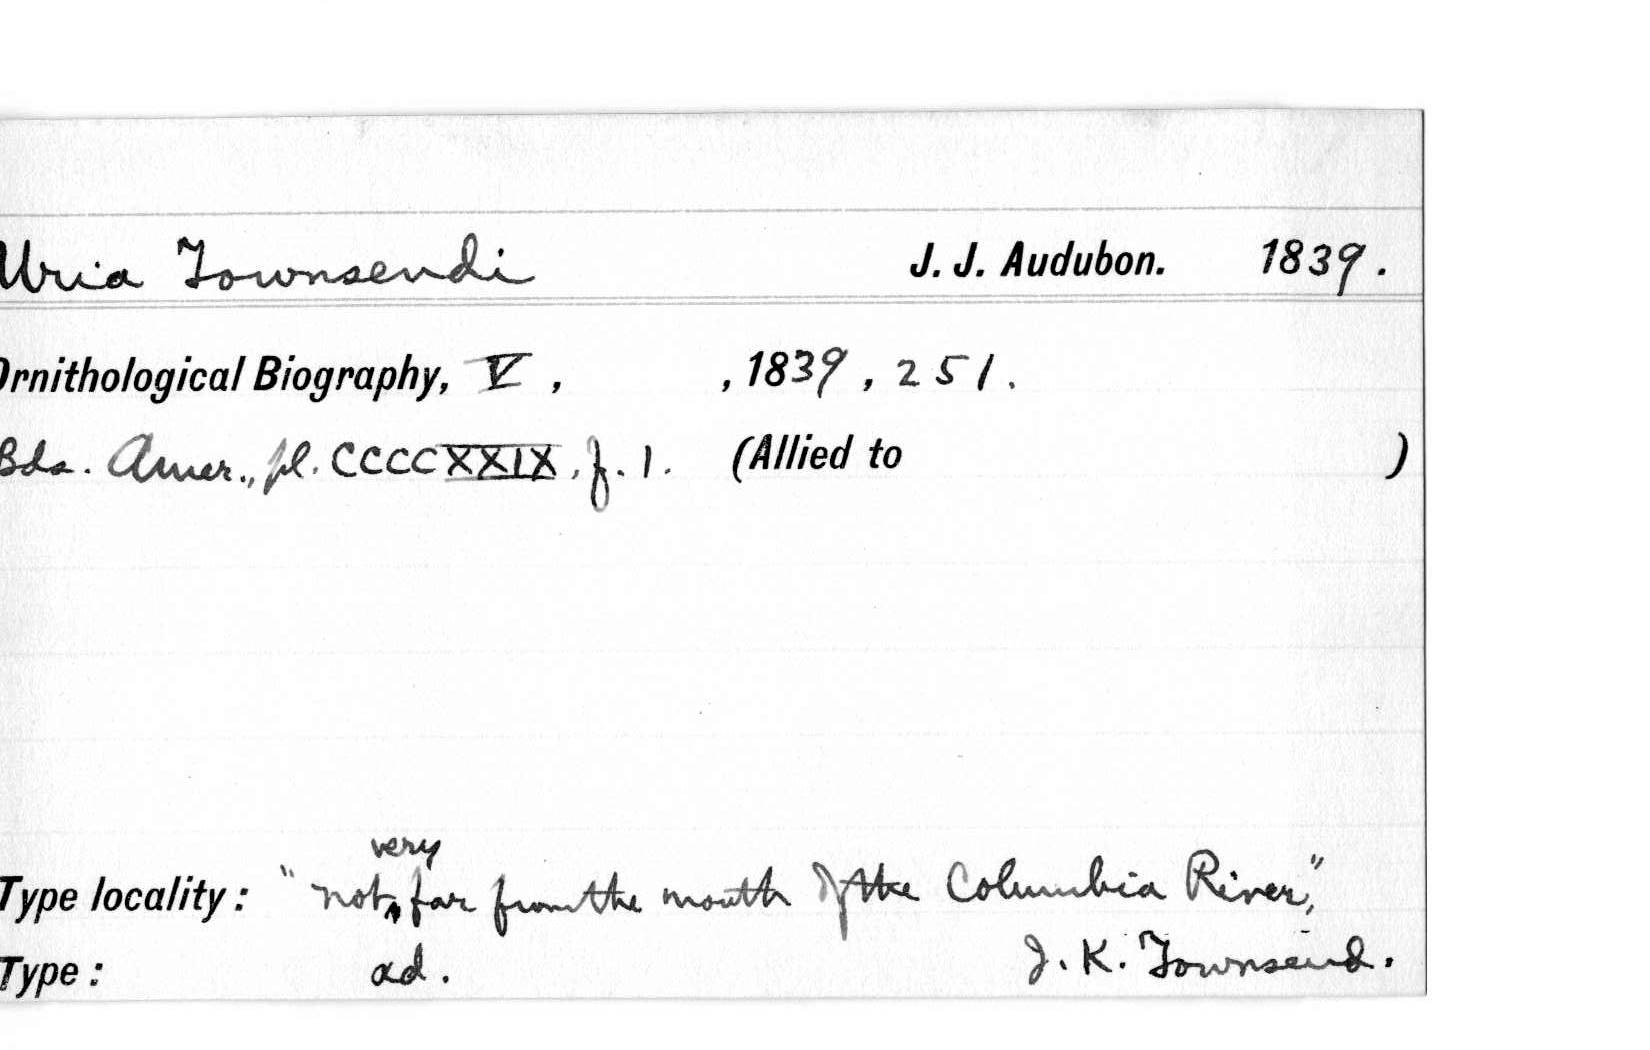 Uria Townsendi J. J. Audubon. 1839.
Ornithological Biography, V, , 1839, 251.
Bds. Amer., pl. CCCCXXIX, f. 1. (Allied to )
Type locality: "not very far from the mouth of the Columbia River,"
Type: ad. J. K. Townsend.